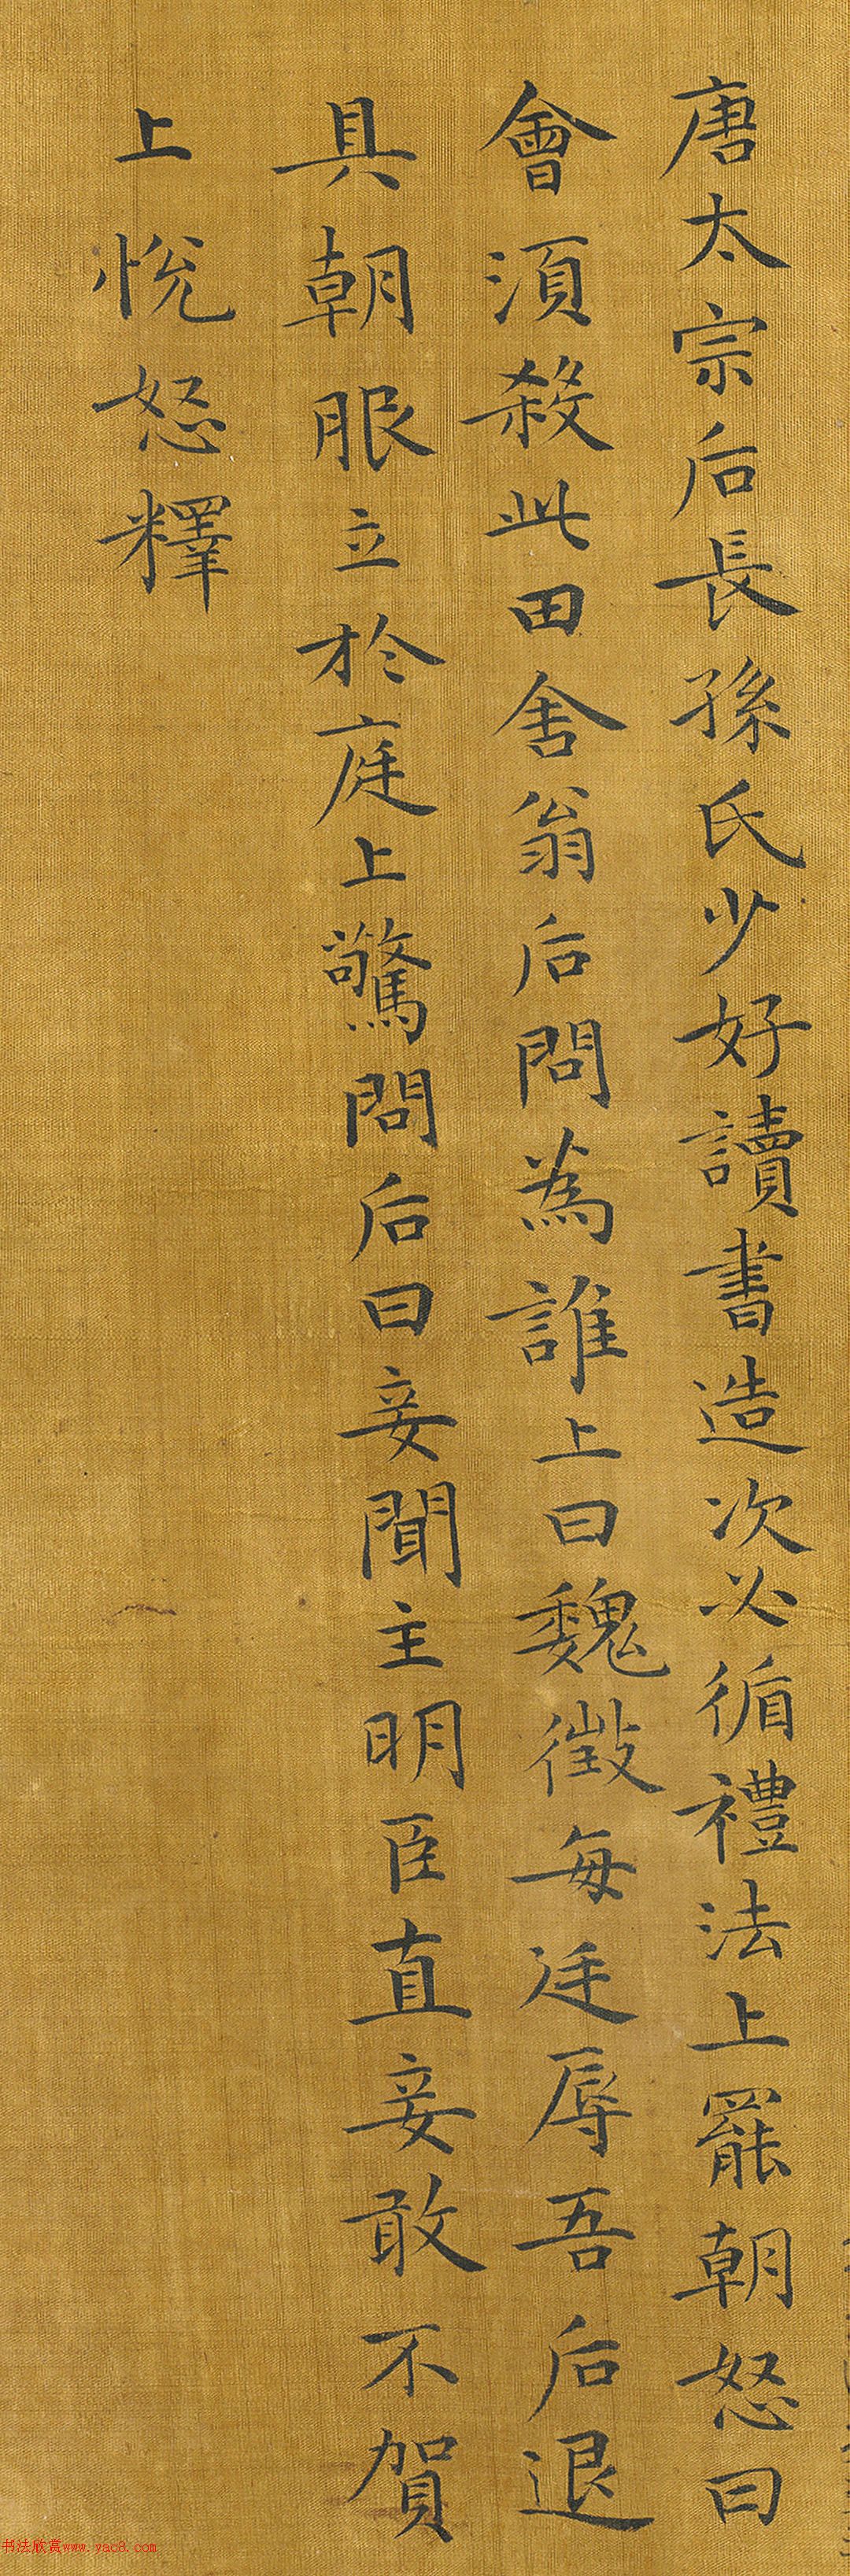 唐太宗后長孫氏少好讀書造次必循禮法上罷朝怒曰
會須殺此田舍翁后問為誰上曰魏徵每廷辱吾后退
具朝服立於庭上驚問后曰妾聞主明臣直妾敢不賀
上悅怒釋
书法欣赏www.yac8.com